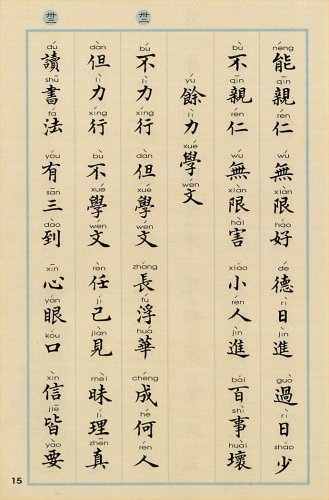 néng qīn rén wú xiàn hǎo dé rì jìn guò rì shǎo
能親仁 無限好 德日進 過日少
bù qīn rén wú xiàn hài xiǎo rén jìn bǎi shì huài
不親仁 無限害 小人進 百事壞
yú lì xué wén
餘力學文
bú lì xíng dàn xué wén zhǎng fú huá chéng hé rén
不力行 但學文 長浮華 成何人
dàn lì xíng bù xué wén rèn jǐ jiàn mèi lǐ zhēn
但力行 不學文 任己見 昧理真
dú shū fǎ yǒu sān dào xīn yǎn kǒu xìn jiē yào
讀書法 有三到 心眼口 信皆要
15